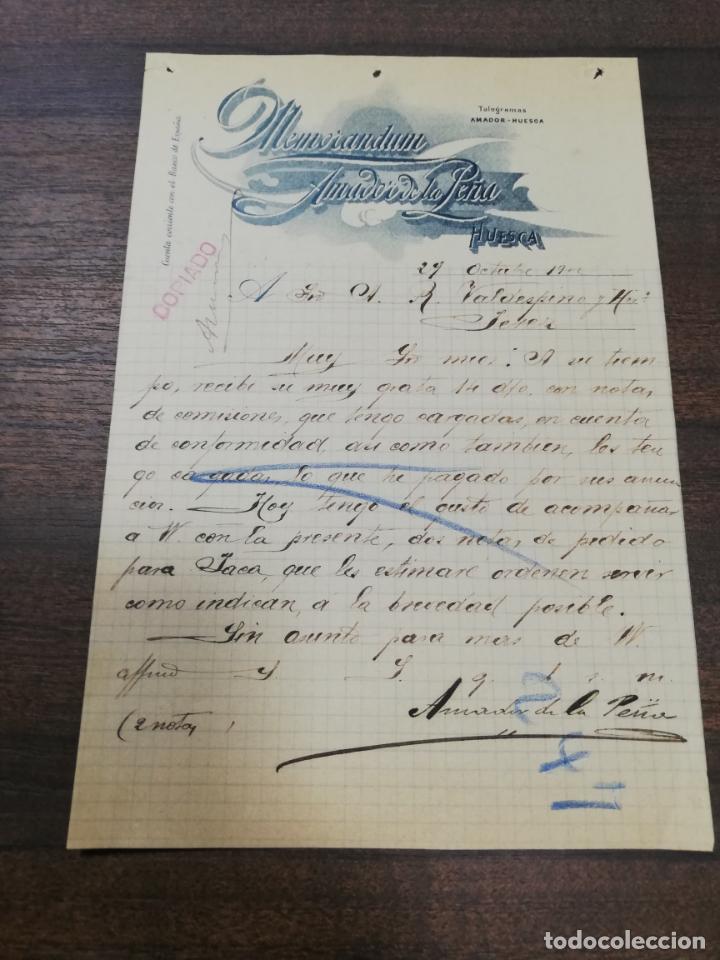 Memorandum
Telegramas
AMADOR-HUESCA
Amador de la Peña
HUESCA
Cuenta corriente con el Banco de España
COPIADO
27 Octubre
A Sres A. R. Valdespino y Hno
Jerez
Muy Sres mios: A su tiem
po, recibi su muy grata 14 d/o, con nota,
de comisiones, que tengo cargadas, en cuenta
de conformidad, asi como tambien, les ten
go cargadas, lo que he pagado por sus anun
cios. Hoy tengo el gusto de acompañar
a W. con la presente, dos notas, de pedido
para Jaca, que les estimare ordenen servir
como indican, á la brevedad posible.
Sin asunto para mas de W.
affmo S. S. q. b. s. m.
Amador de la Peña
(2 notas)
todocoleccion.net